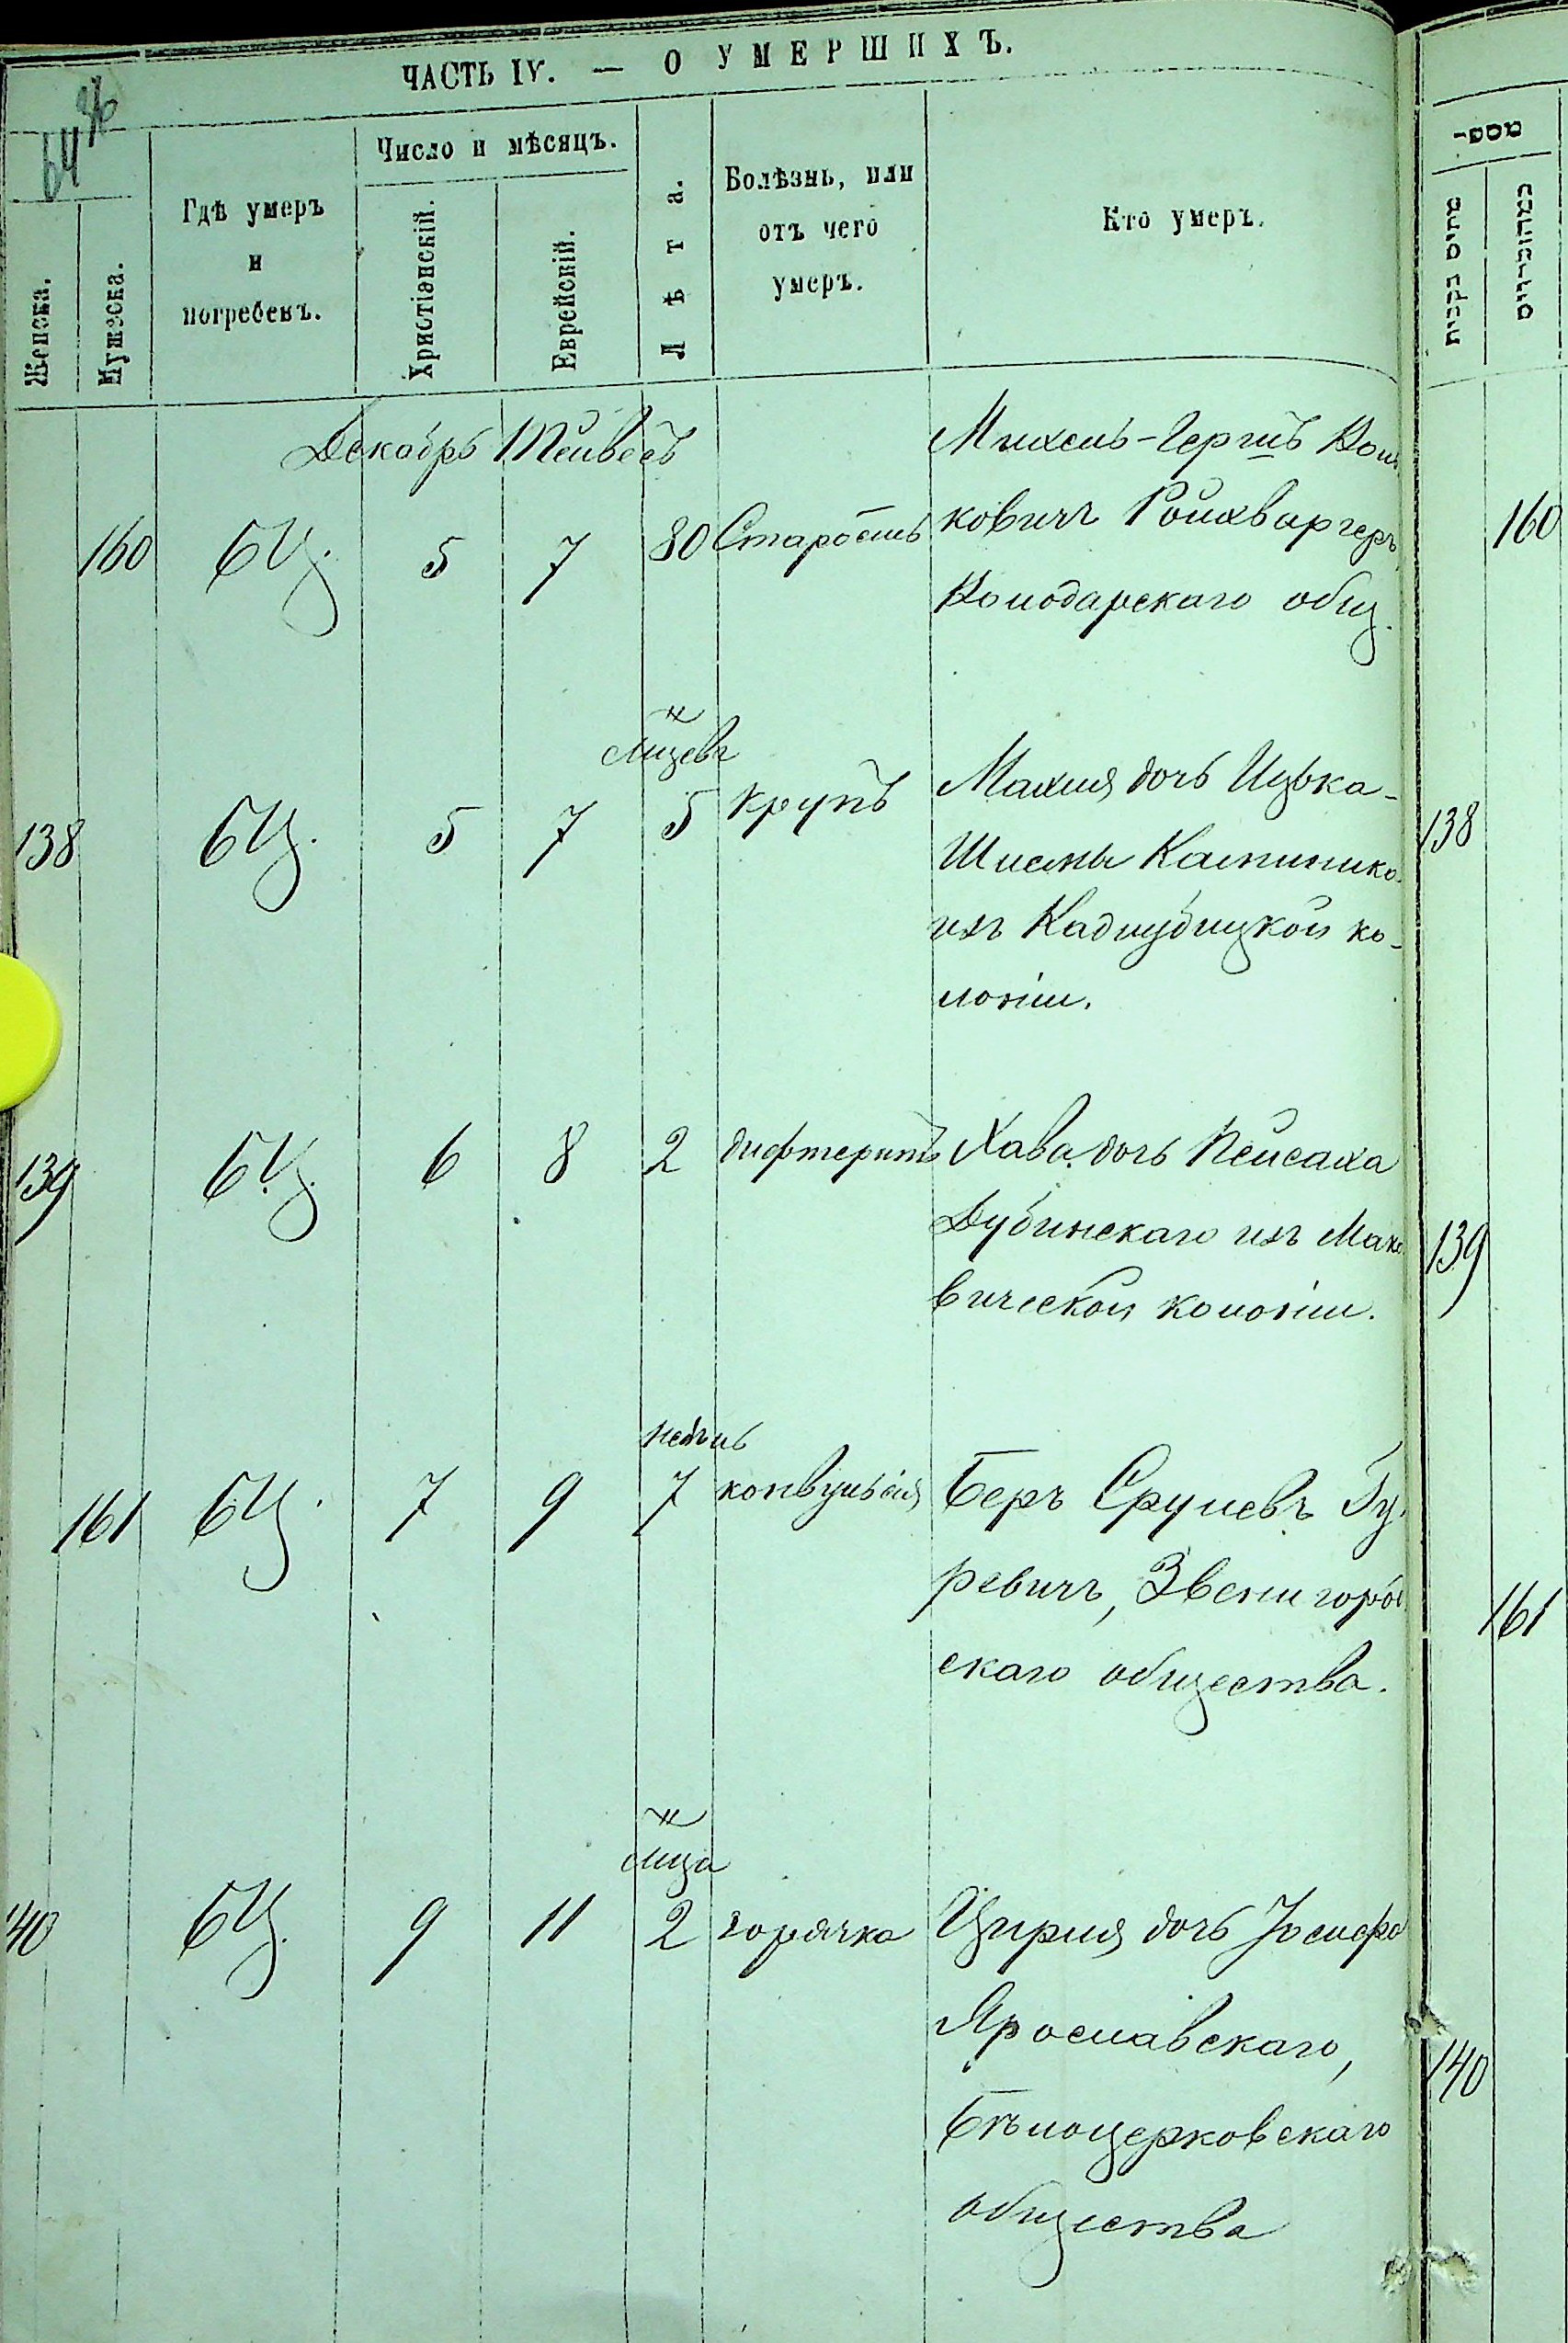 ЧАСТЬ IV. — О УМЕРШИХЪ.
64
Женска.
Мужеска.
Гдѣ умеръ
и
погребенъ.
Число и мѣсяцъ.
Христіанскій.
Еврейскій.
Лѣта.
Болѣзнь, или
отъ чего
умеръ.
Кто умеръ.
מספר
Декабрь Тейвесъ
160 БЦ. 5 7 80 Старость
Михель-Гершъ
ковичъ Ройхваргеръ,
общ.
160
мцевъ
138 БЦ. 5 7 5 крупъ
Махля дочь Ицька-
Шиемы
изъ Кадлубицкой ко-
лоніи.
138
139 БЦ. 6 8 2 дифтеритъ
Хава дочь Пейсаха
Дубинскаго изъ
вической колоніи.
139
недѣль
161 БЦ. 7 9 7 конвульсія
Беръ Срулевъ Гу-
ревичъ, Звенигород
скаго общества.
161
мца
140 БЦ. 9 11 2 горячка
Цирля дочь Іосифа
Ярославскаго,
Бѣлоцерковскаго
общества
140